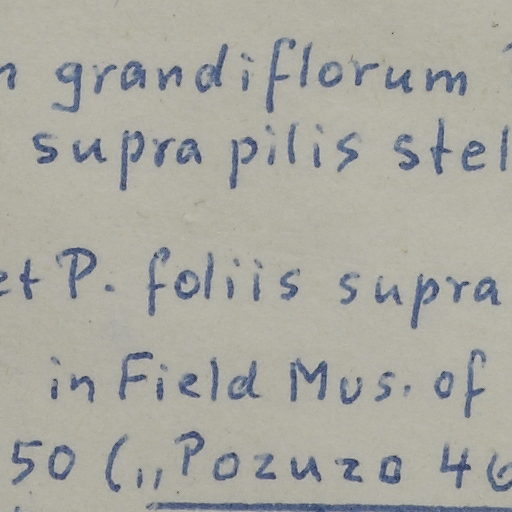 n grandiflorum
supra pilis stel
et P. foliis supra
in Field Mus. of
50 („Pozuzo 46